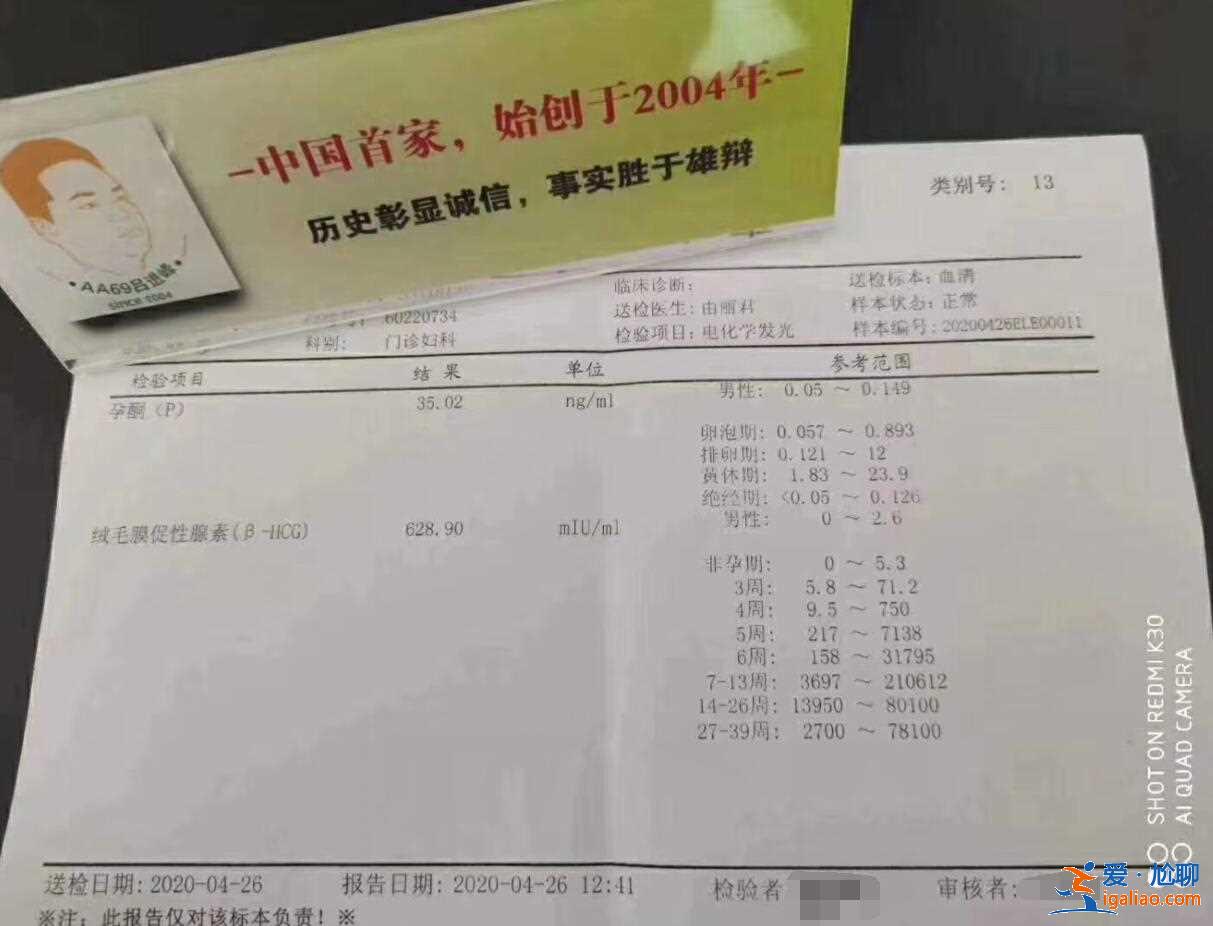 -中国首家，始创于2004年-
历史彰显诚信，事实胜于雄辩
AA69吕进峰
SINCE 2004
类别号: 13
临床诊断:
送检标本: 血清
60220734
送检医生: 由丽君
样本状态: 正常
科别: 门诊妇科
检验项目: 电化学发光
样本编号: 20200426ELE00011
检验项目 结 果 单位 参考范围
孕酮 (P) 35.02 ng/ml 男性: 0.05 ～ 0.149
卵泡期: 0.057 ～ 0.893
排卵期: 0.121 ～ 12
黄体期: 1.83 ～ 23.9
绝经期: <0.05 ～ 0.126
男性: 0 ～ 2.6
绒毛膜促性腺素(β-HCG) 628.90 mIU/ml
非孕期: 0 ～ 5.3
3周: 5.8 ～ 71.2
4周: 9.5 ～ 750
5周: 217 ～ 7138
6周: 158 ～ 31795
7-13周: 3697 ～ 210612
14-26周: 13950 ～ 80100
27-39周: 2700 ～ 78100
送检日期: 2020-04-26 报告日期: 2020-04-26 12:41 检验者 审核者:
※注: 此报告仅对该标本负责! ※
SHOT ON REDMI K30
AI QUAD CAMERA
爱·尬聊
igaliao.com